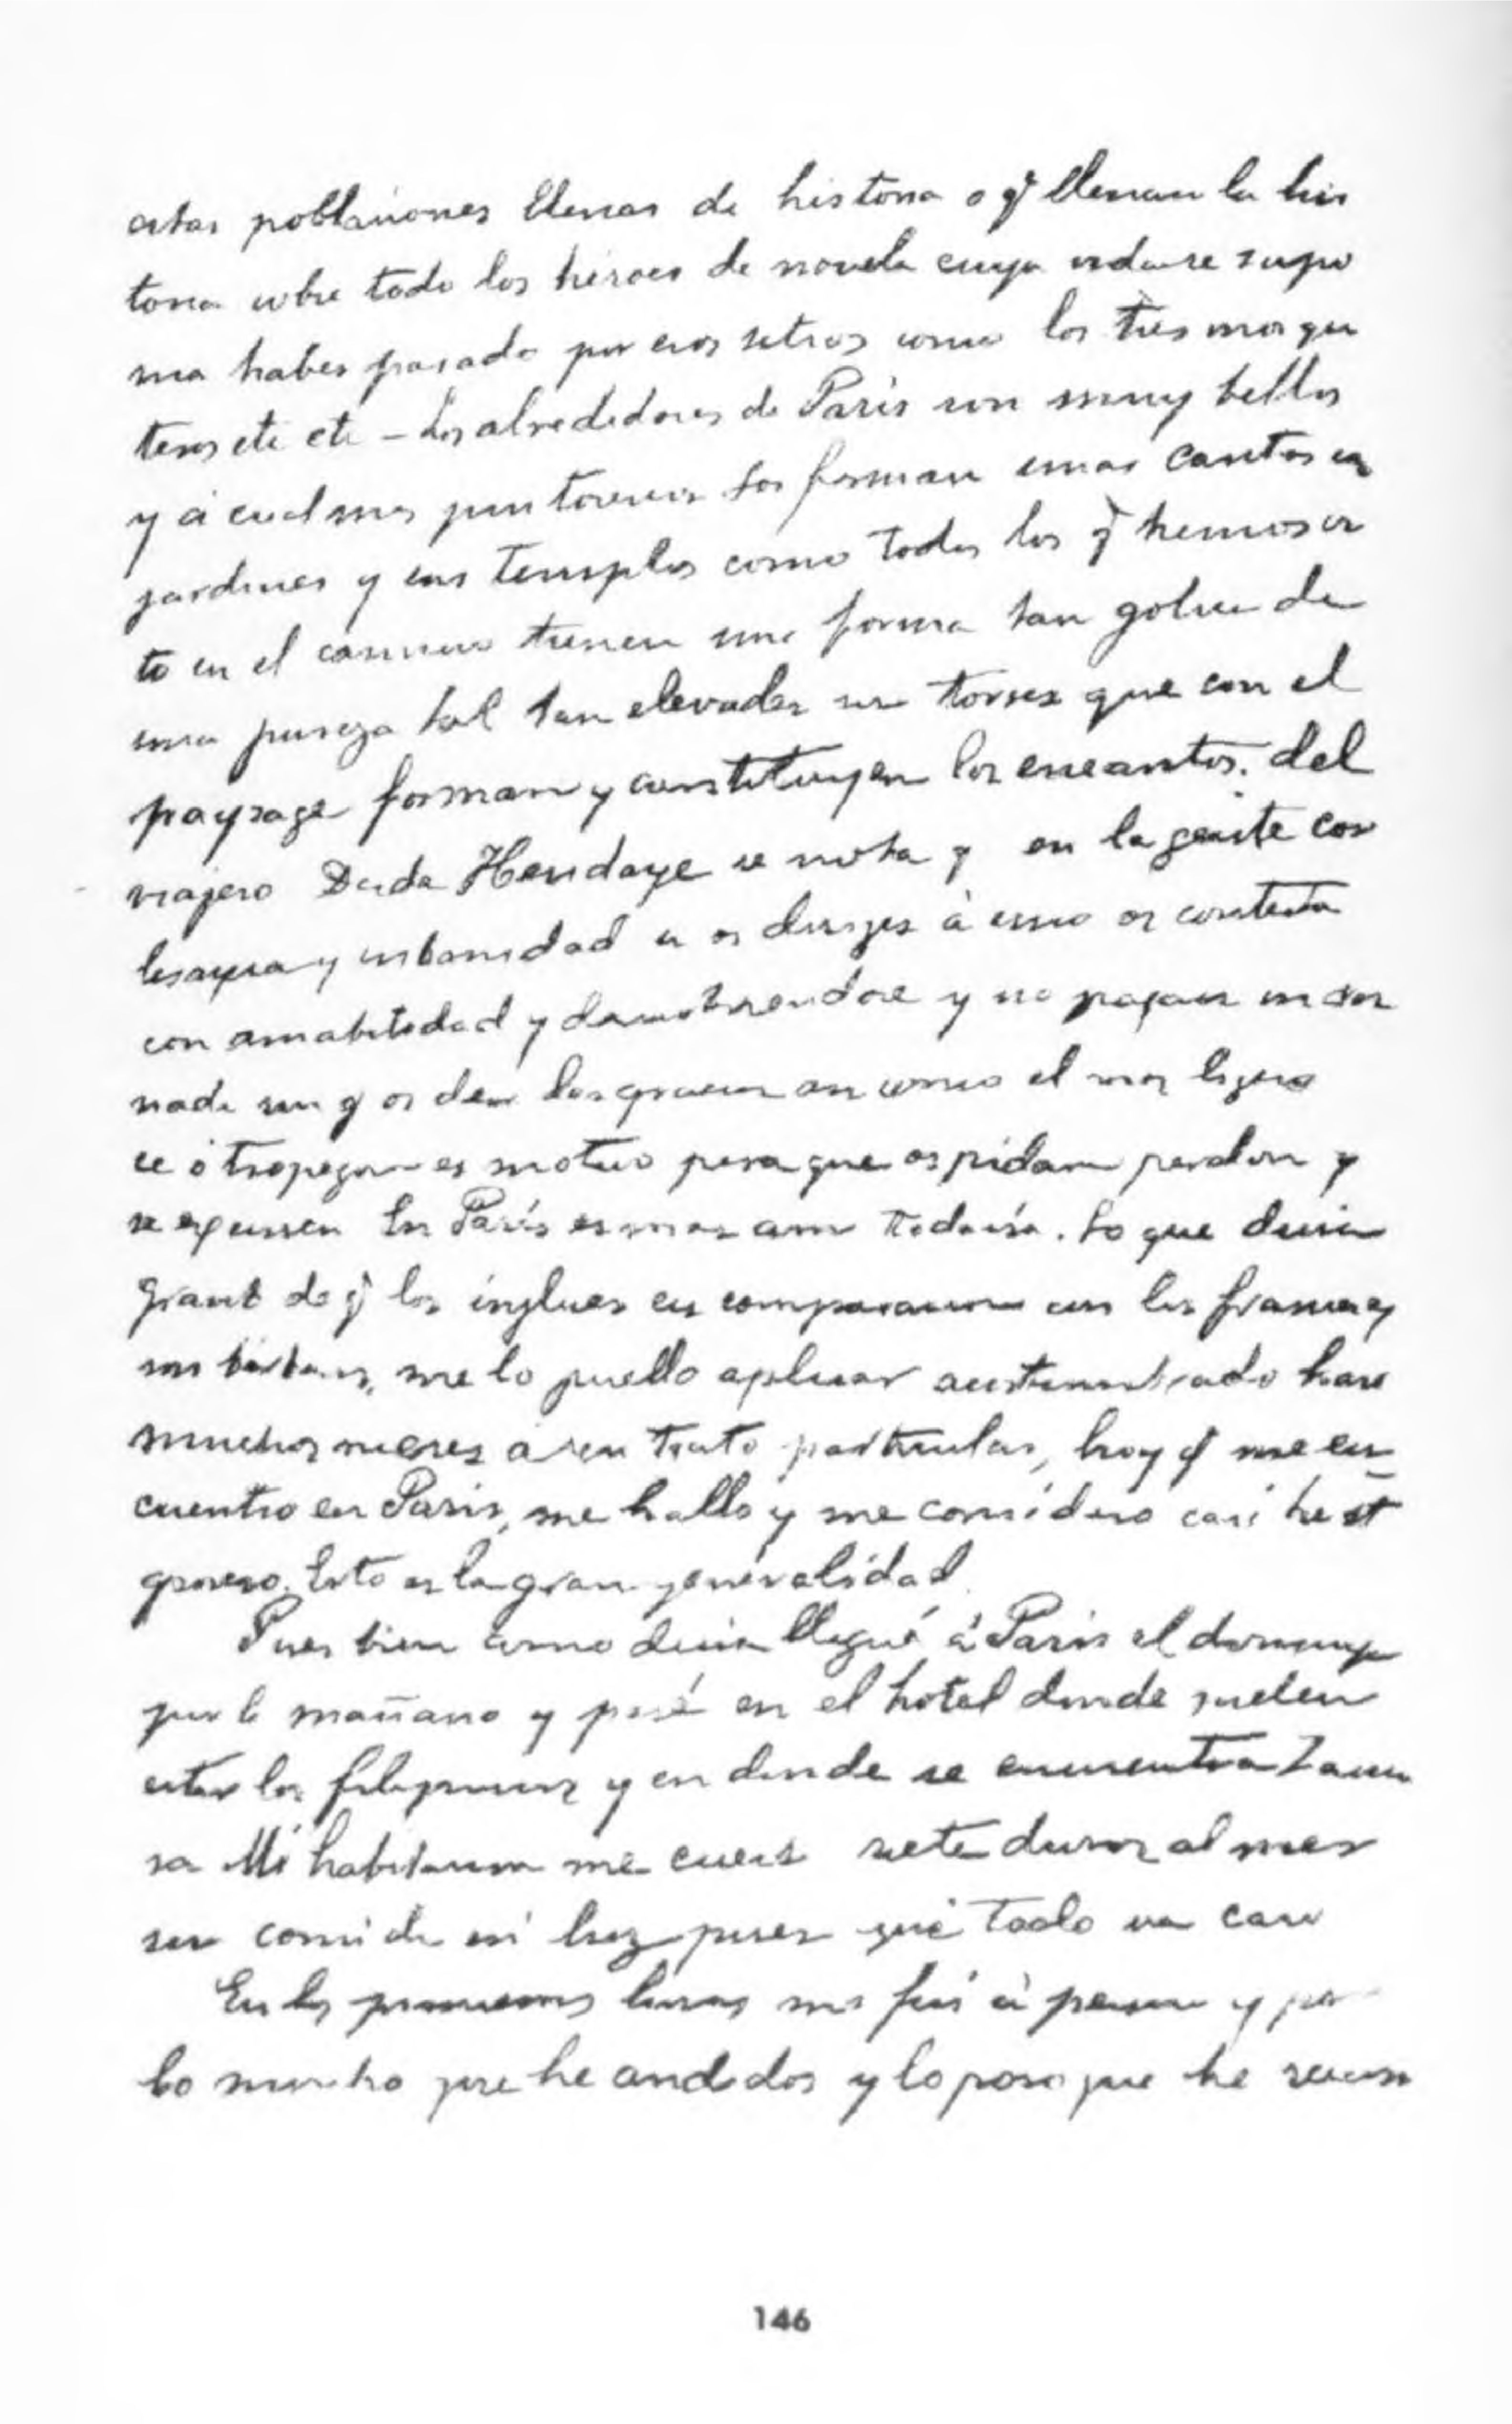 estas poblaciones llenas de historia o q̃ llenan la his
toria sobre todo los héroes de novela cuya se supo
nia haber pasado por esos sitios como los tres mosque
teros etc etc – Los alrededores de Paris son muy bellos
y á cual mas pintorescos los forman unas
jardines y sus templos como todos los q̃ hemos vis
to en el camino tienen una forma tan de
una pureza tal tan elevadas sus torres que con el
paysage forman y constituyen los encantos del
viajero Desde Hendaye se nota q̃ en la gente cor
tesania y urbanidad si os dirijis á uno os contesta
con amabilidad y descubriendose y no pagais un sou
nada sin q̃ os den las gracias asi como el mas lijero
ce ó tropezon es motivo para que os pidan perdon y
se escusen En Paris es mas aun todavia. Lo que decia
Grant de q̃ los ingleses en comparacion con los franceses
son bárbaros, me lo puedo aplicar acostumbrado hace
muchos meses á su trato particular, hoy q̃ me en
cuentro en Paris, me hallo y me considero casi hast
grosero. Esto es la gran generalidad.
Pues bien como decia llegué á Paris el domingo
por la mañana y posé en el hotel donde suelen
estar los filipinos y en donde se encuentra Zamo
ra Mi habitacion me cuesta siete duros al mes
sin comida ni luz pues que todo va caro
En las primeras horas me fui á pasear y por
lo mucho que he andado y lo poco que he
146